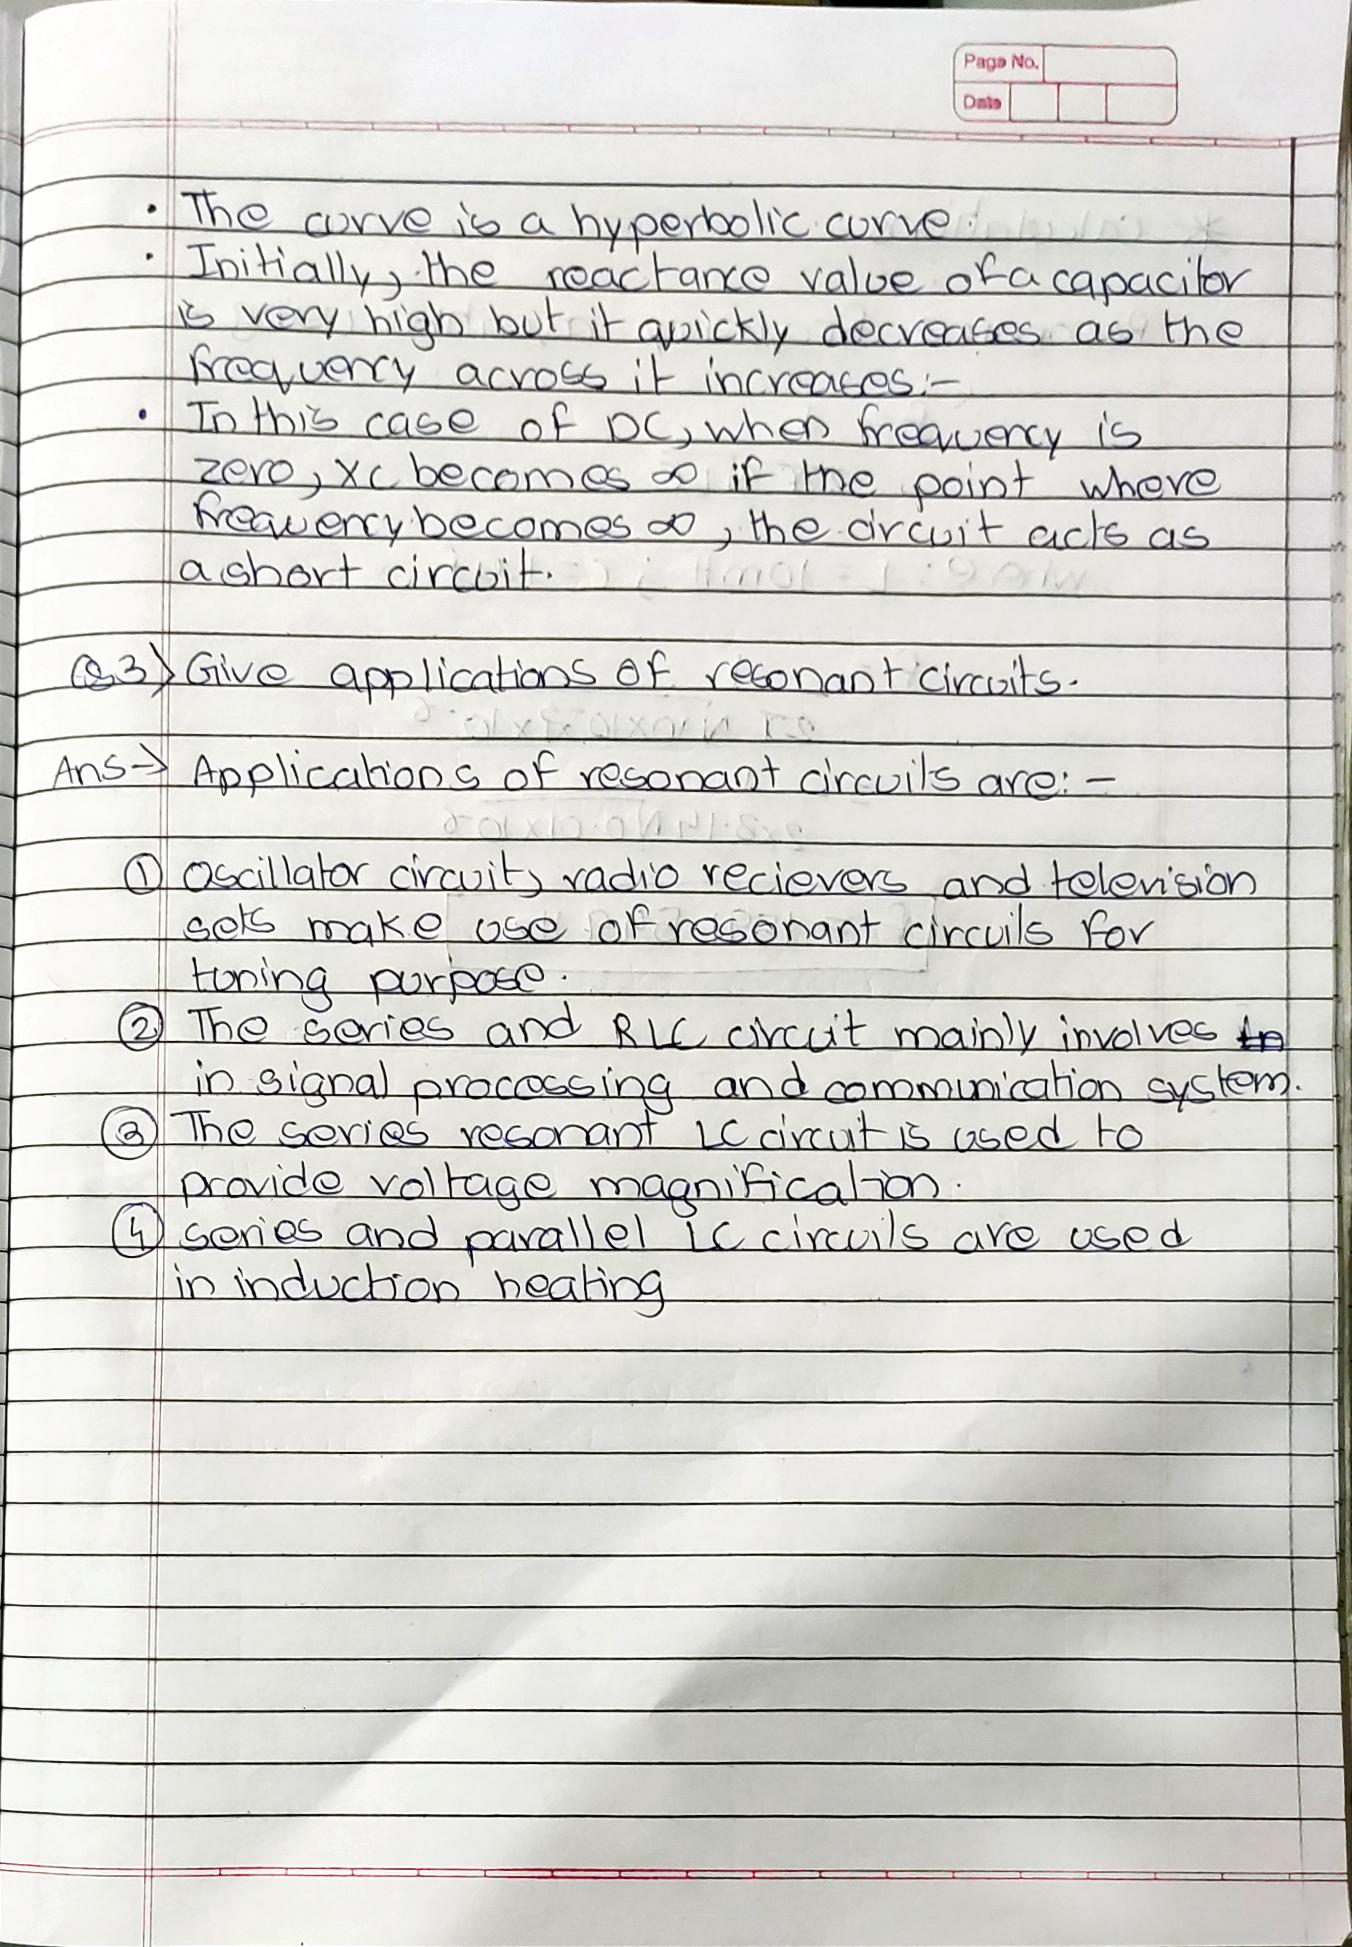 Page No.
Date
• The curve is a hyperbolic curve.
• Initially, the reactance value of a capacitor
is very high but it quickly decreases as the
frequency across it increases:-
• In this case of DC, when frequency is
zero, XC becomes ∞ if the point where
frequency becomes ∞, the circuit acts as
a short circuit.
Q.3) Give applications of resonant circuits.
Ans→ Applications of resonant circuits are: -
① Oscillator circuit, radio recievers and television
sets make use of resonant circuits for
tuning purpose.
② The series and RLC circuit mainly involves
in signal processing and communication system.
③ The series resonant LC circuit is used to
provide voltage magnification.
④ series and parallel LC circuits are used
in induction heating